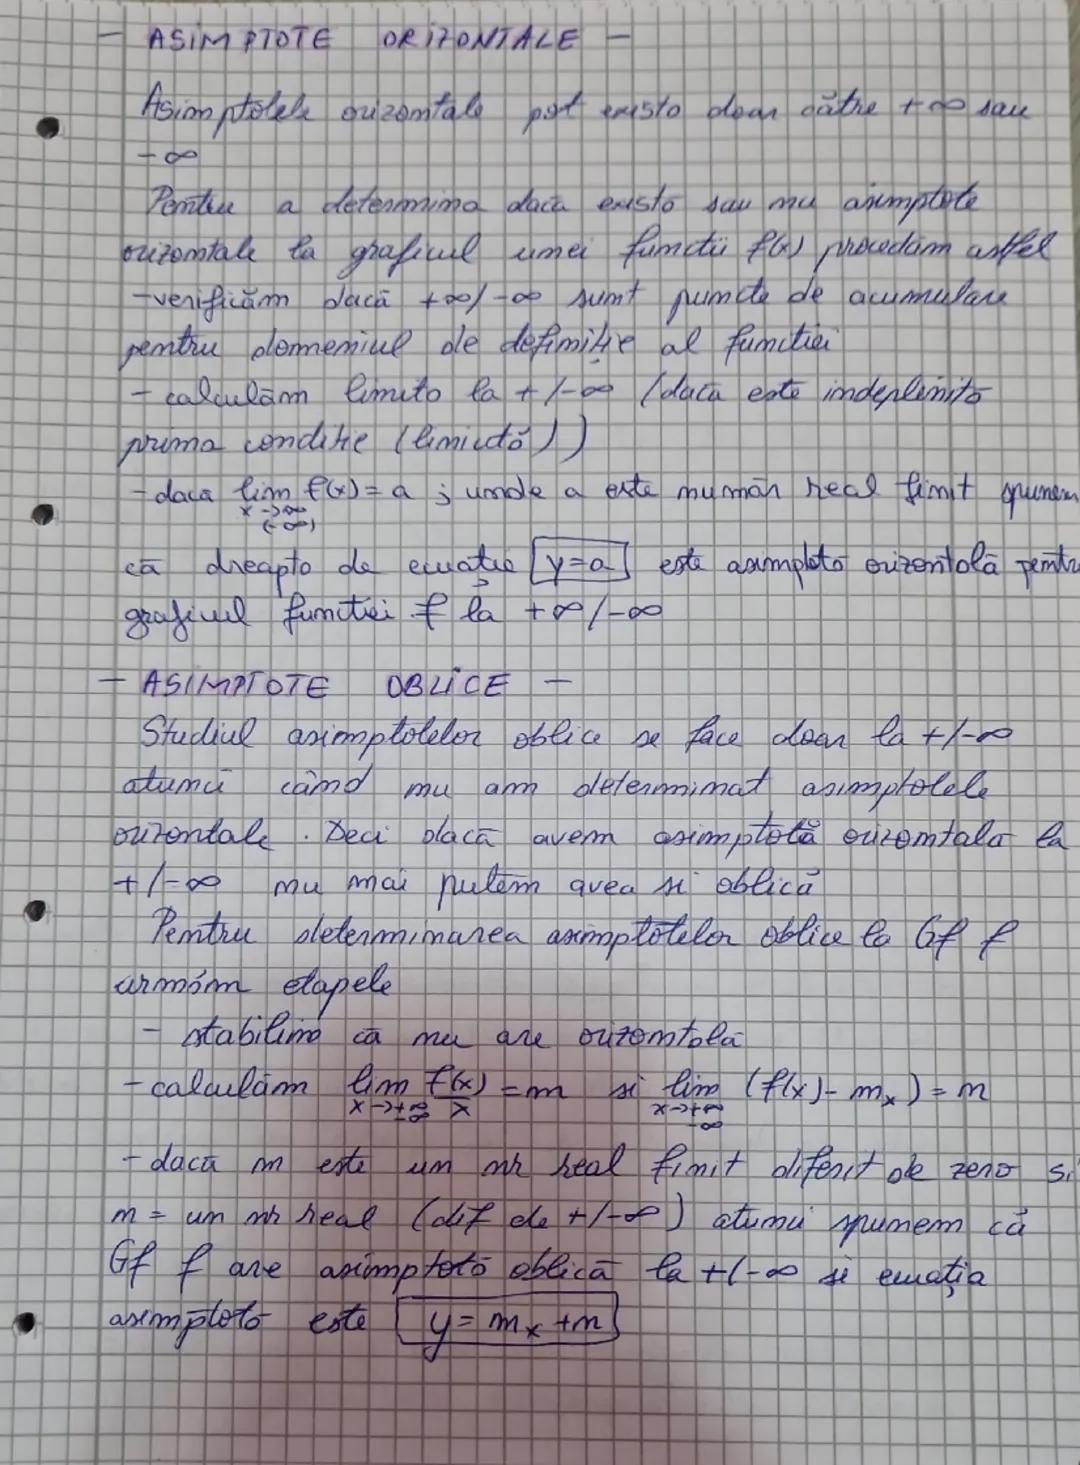 - ASIMPTOTE ORIZONTALE -
Asimptotele orizontale pot exista doar către +∞ sau
-∞
Pentru a determina dacă există sau nu asimptote
orizontale la graficul unei funcții f(x) procedăm astfel
- verificăm dacă +∞/-∞ sunt puncte de acumulare
pentru domeniul de definiție al funcției
- calculăm limita la +/-∞ (dacă este indeplinită
prima condiție (limită))
- daca lim f(x) = a ; unde a este număr real finit spunem
x->∞
(-∞)
că dreapta de ecuație y=a este asimptotă orizontală pentru
graficul funcției f la +∞/-∞
- ASIMPTOTE OBLICE -
Studiul asimptotelor oblice se face doar la +/-∞
atunci când nu am determinat asimptotele
orizontale. Deci dacă avem asimptotă orizontala la
+/-∞ nu mai putem avea si oblică
Pentru determinarea asimptotelor oblice la Gf f
urmăm etapele
- stabilim că nu are orizontală
- calculăm lim f(x)/x = m si lim (f(x) - mx) = n
x->+∞ -∞ x->+∞ -∞
- dacă m este un nr real finit diferit de zero si
n = un nr real (dif de +/-∞) atunci spunem că
Gf f are asimptotă oblică la +/-∞ si ecuația
asimptotă este y = mx + n